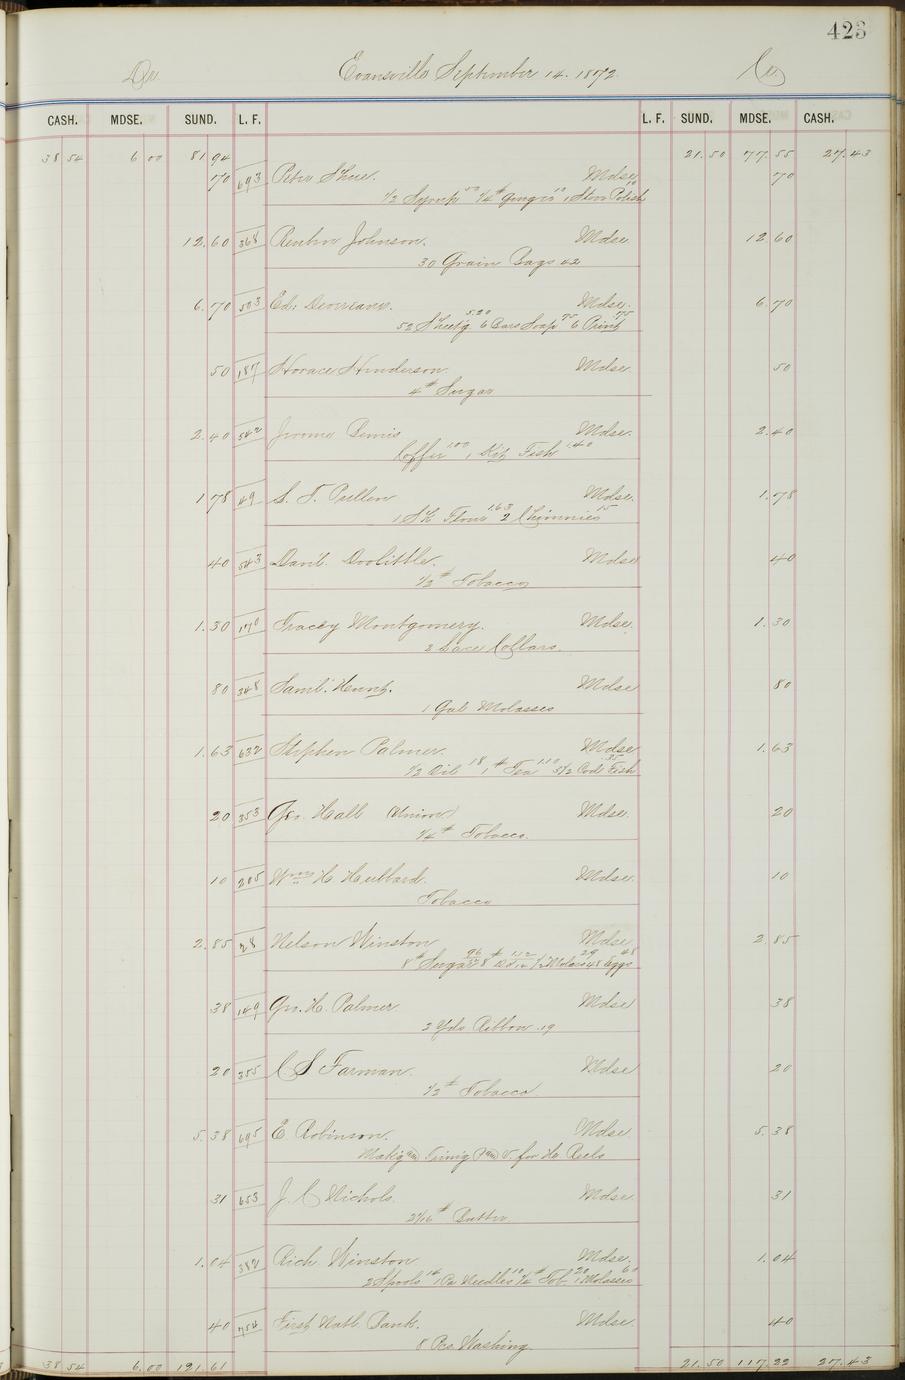 423
Dr Evansville September 14. 1872. Cr
CASH. MDSE. SUND. L. F. L. F. SUND. MDSE. CASH.
38 54 6 00 81 94 21.50 77.55 27.43
70 693 Peter Shue. Mdse 70
1/2 Syrup 50 1/4# Ginger 10 1 Stove Polish 10
12.60 368 Reuben Johnson. Mdse 12.60
30 Grain Bags 42
6.70 503 Ed: Devereaux. Mdse. 6.70
52 Sheet'g 5.20 6 Bars Soap 75 6 Print 75
50 187 Horace Henderson. Mdse 50
4# Sugar
2.40 542 Jerome Bemis Mdse. 2.40
Coffee 1.00 1 Kit Fish 1.40
1 78 49 S. T. Pullen Mdse. 1.78
1 Sk Flour 1.63 2 Chimnies 15
40 543 Danl. Doolittle. Mdse 40
1/2# Tobacco
1.30 170 Tracey Montgomery. Mdse. 1.30
2 Lace Collars.
80 348 Saml. Hunt. Mdse 80
1 Gal Molasses
1.63 632 Stephen Palmer. Mdse 1.63
1/2 Oil 18 1# Tea 1.10 3 1/2 Cod Fish 35
20 353 Geo. Hall (Union) Mdse. 20
1/4# Tobacco.
10 205 Wm H. Hubbard. Mdse. 10
Tobacco
2.85 28 Nelson Winston Mdse 2.85
8# Sugar 96 8# 1.12 1/2 Molass 29 48 Eggs 48
38 149 Geo. H. Palmer. Mdse 38
2 Yds Ribbon .19
20 355 C S Farman. Mdse 20
1/2# Tobacco.
5.38 695 E Robinson. Mdse. 5.38
Makig Trimig V. for H. Reels
31 653 J. C Nichols. Mdse 31
2 1/16# Butter.
1.04 382 Rich Winston Mdse. 1.04
2 Spools 14 1 Pa Needles 10 1/4# Tob. 20 1 Molasses 60
40 754 First Natl. Bank. Mdse. 40
8 Pcs. Washing.
38 54 6.00 121.61 21.50 117.22 27.43